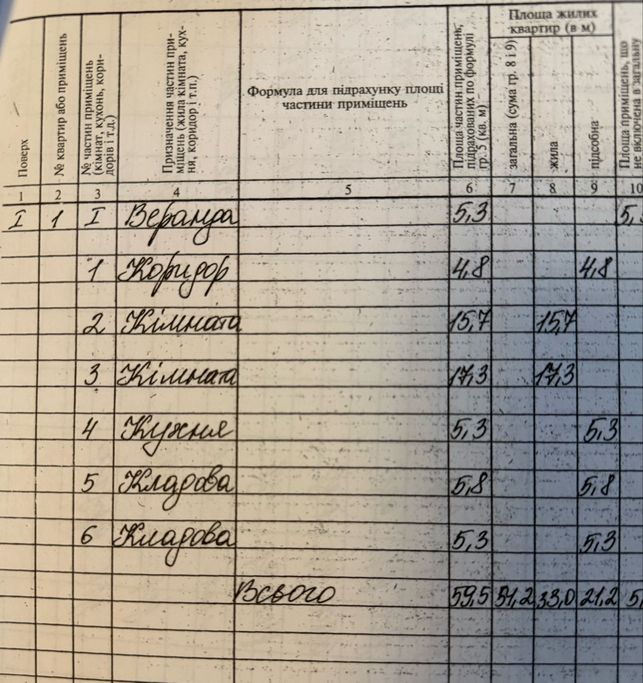 Поверх
№ квартир або приміщень
№ частин приміщень (кімнат, кухонь, коридорів і т.д.)
Призначення частин приміщень (жила кімната, кухня, коридор і т.п.)
Формула для підрахунку площі частини приміщень
Площа частин приміщень, підрахованих по формулі гр. 5 (кв. м)
Площа жилих квартир (в м)
загальна (сума гр. 8 і 9)
жила
підсобна
Площа приміщень, що не включена в загальну
1 2 3 4 5 6 7 8 9 10
I 1 I Веранда 5,3
1 Коридор 4,8 4,8
2 Кімната 15,7 15,7
3 Кімната 17,3 17,3
4 Кухня 5,3 5,3
5 Кладова 5,8 5,8
6 Кладова 5,3 5,3
Всього 59,5 51,2 33,0 21,2